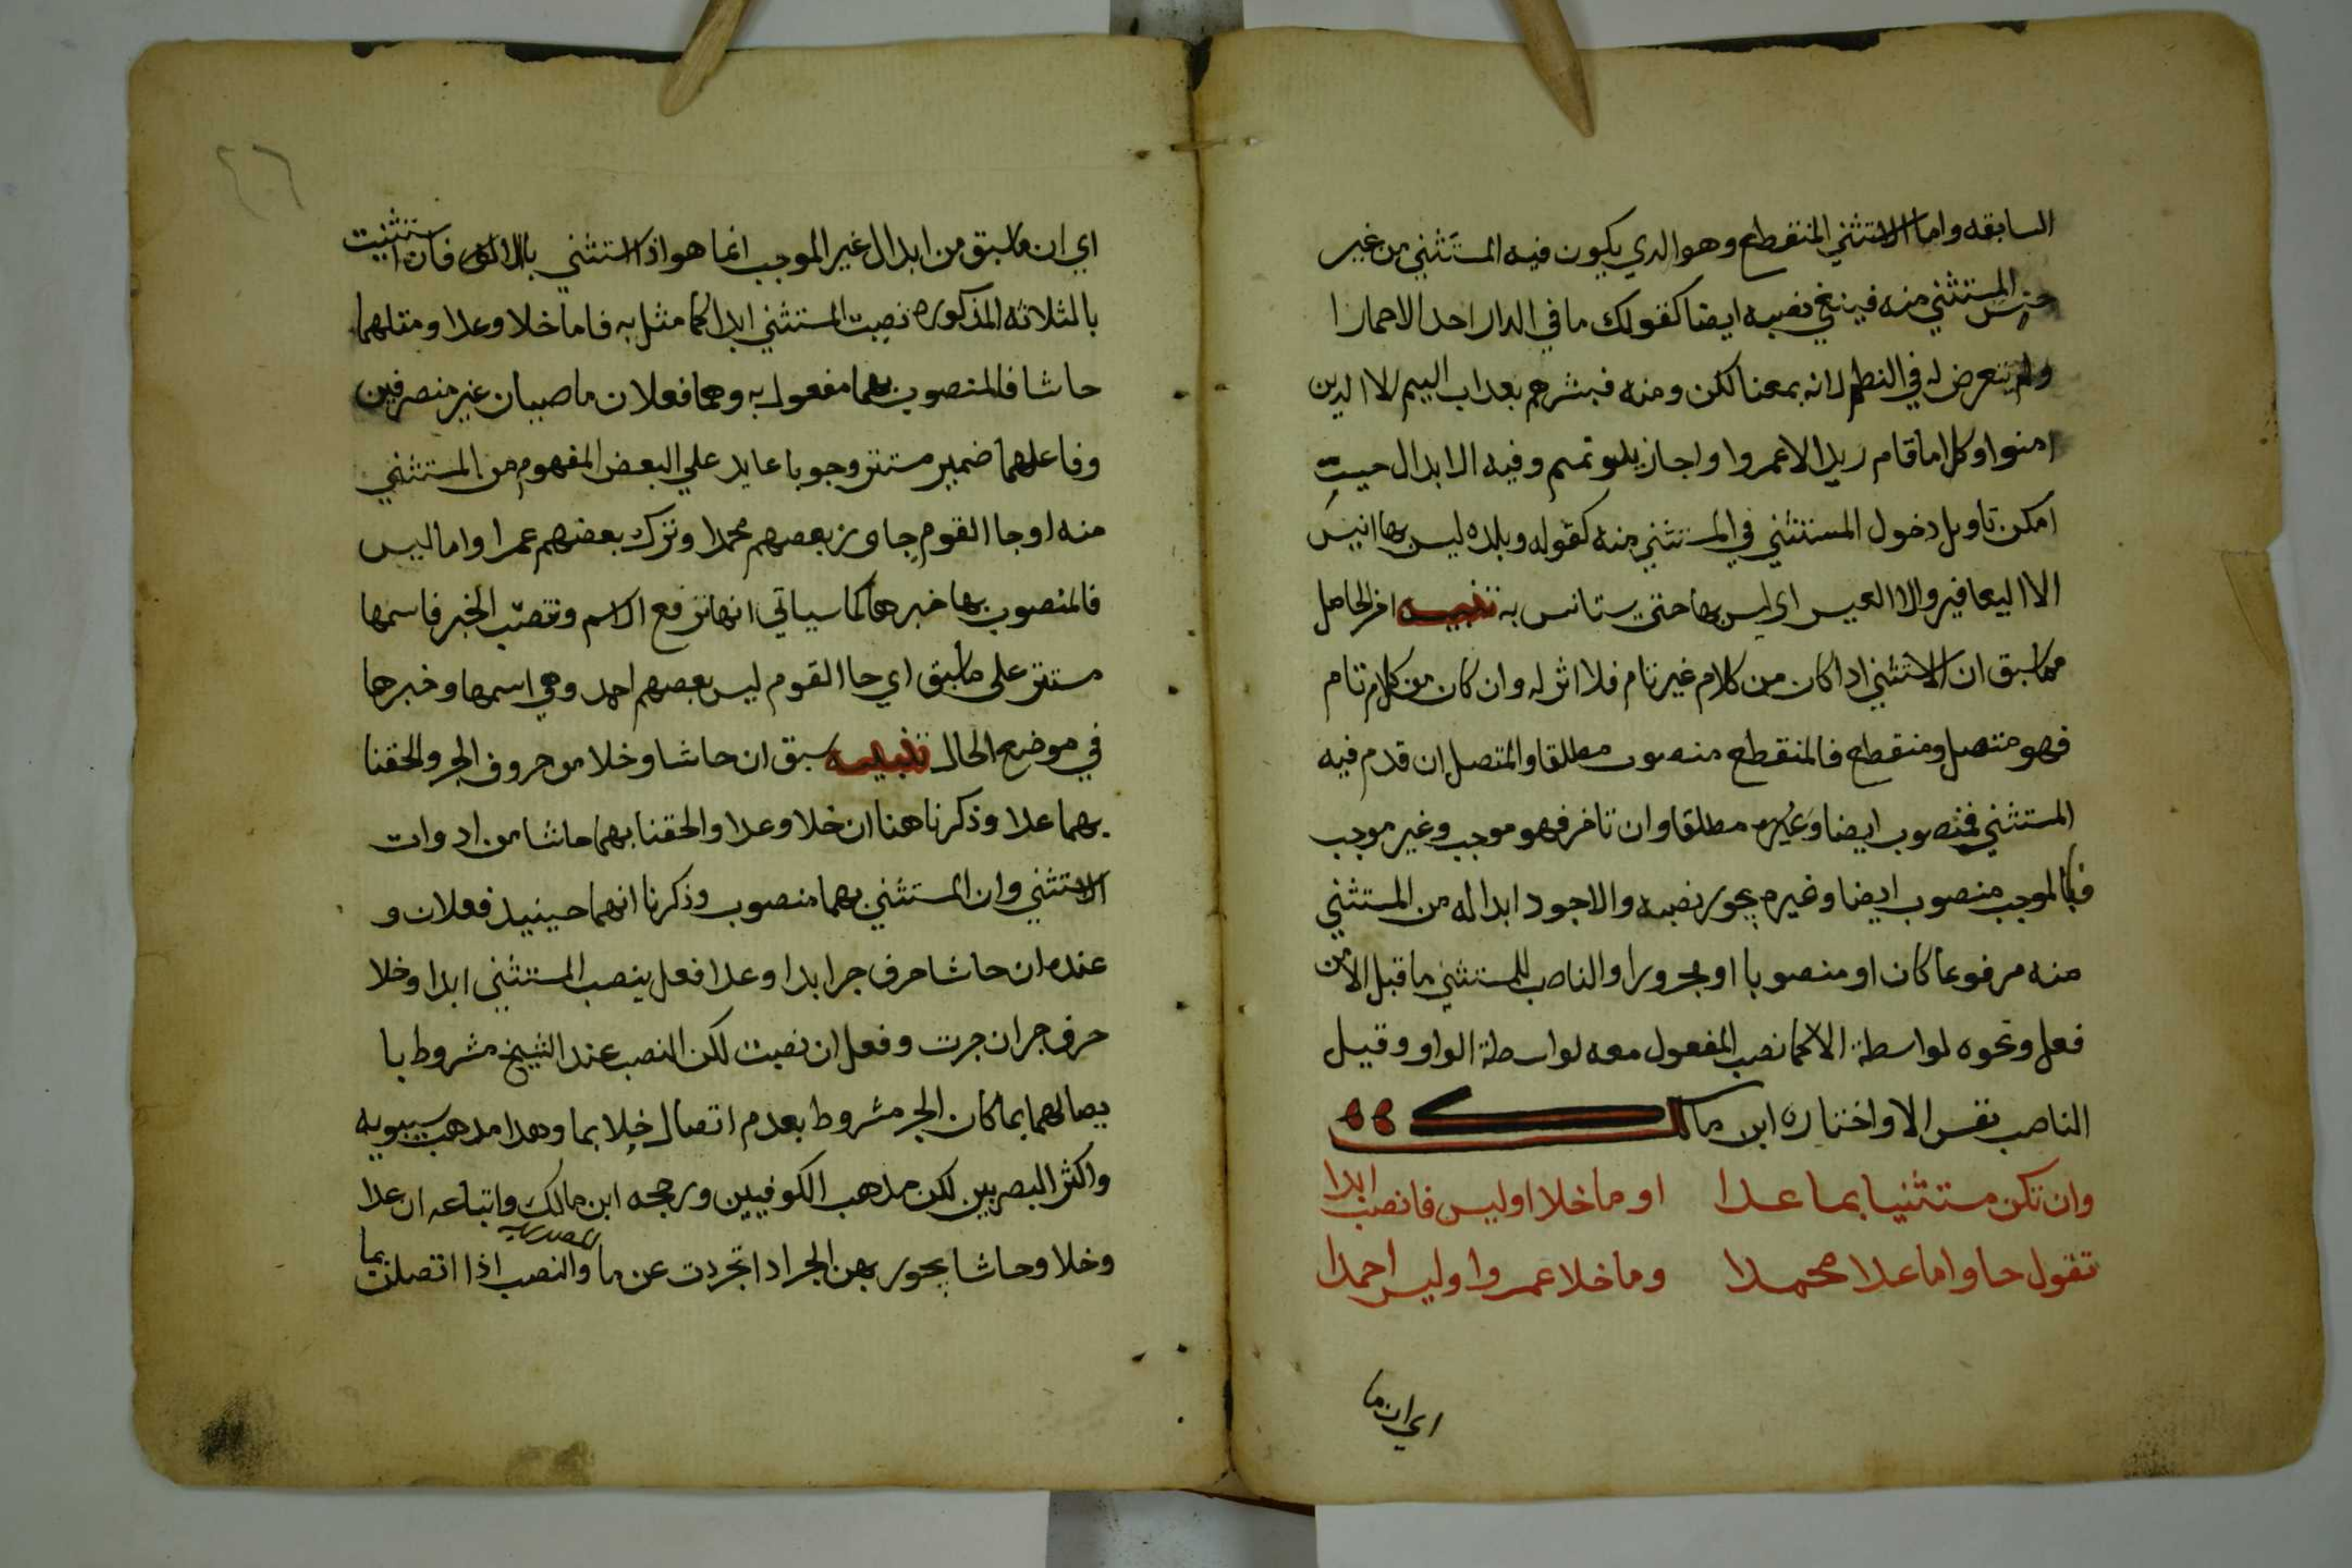 السابقه واما الاستثني المنقطع وهو الدي يكون فيه المستثني من غير
جنس المستثني منه فينبغي نصبه ايضا كقولك ما في الدار احد الا حمارا
ولم يتعرض له في النظم لانه بمعنا لكن ومنه فبشرهم بعداب اليم الا الدين
امنوا وكل اما قام زيد الا عمروا واجاز بنو تميم وفيه الابدال حيث
امكن تاويل دخول المستثني في المستثني منه كقوله وبلده ليس بها انيس
الا اليعافير والا العيس اي ليس بها حتي يستانس به تنبيه اخر الحاصل
مما سبق ان الاستثني ادا كان من كلام غير تام فلا اثر له وان كان من كلام تام
فهو متصل ومنقطع فالمنقطع منصوب مطلقا والمتصل ان قدم فيه
المستثني فمنصوب ايضا وغيره مطلقا وان تاخر فهو موجب وغير موجب
فالموجب منصوب ايضا وغيره يجوز نصبه والاجود ابداله من المستثني
منه مرفوعا كان او منصوبا او مجرورا والناصب للمستثني ما قبل الا من
فعل ونحوه لواسطة الا كما نصب المفعول معه لواسطة الواو وقيل
الناصب نفس الا واختاره ابن مالك
وان تكن مستثنيا بما عدا او ما خلا او ليس فانصب ابدا
تقول جاوا ما عدا محمدا وما خلا عمروا وليس احمدا
اي ان ما
٢٦
اي ان ما سبق من ابدال غير الموجب انما هو اذا استثني بالا فان استثنيت
بالثلاثه المذكوره نصبت المستثني ابدا كما مثل به فاما خلا وعدا ومثلهما
حاشا فالمنصوب بهما مفعول به وهما فعلان ماضيان غير منصرفين
وفاعلهما ضمير مستتر وجوبا عايد علي البعض المفهوم من المستثني
منه او جا القوم جاوز بعضهم محمدا وترك بعضهم عمرا واما ليس
فالمنصوب بها خبرها كما سياتي انها ترفع الاسم وتنصب الخبر فاسمها
مستتر على ما سبق اي جا القوم ليس بعضهم احمد وهي اسمها وخبرها
في موضع الحال تنبيه سبق ان حاشا وخلا من حروف الجر والحقنا
بهما عدا وذكرنا هنا ان خلا وعدا والحقنا بهما حاشا من ادوات
الاستثني وان المستثني بهما منصوب وذكرنا انهما حينيد فعلان و
عنده ان حاشا حرف جر ابدا وعدا فعل ينصب المستثني ابدا وخلا
حرف جر ان جرت وفعل ان نصبت لكن النصب عند الشيخ مشروط با
يصالهما بما كان الجر مشروط بعدم اتصال خلا بما وهدا مدهب سيبويه
واكثر البصريين لكن مدهب الكوفيين ورجحه ابن مالك واتباعه ان عدا
وخلا وحاشا يجوز بهن الجر ادا تجردت عن ما والنصب اذا اتصلت بما